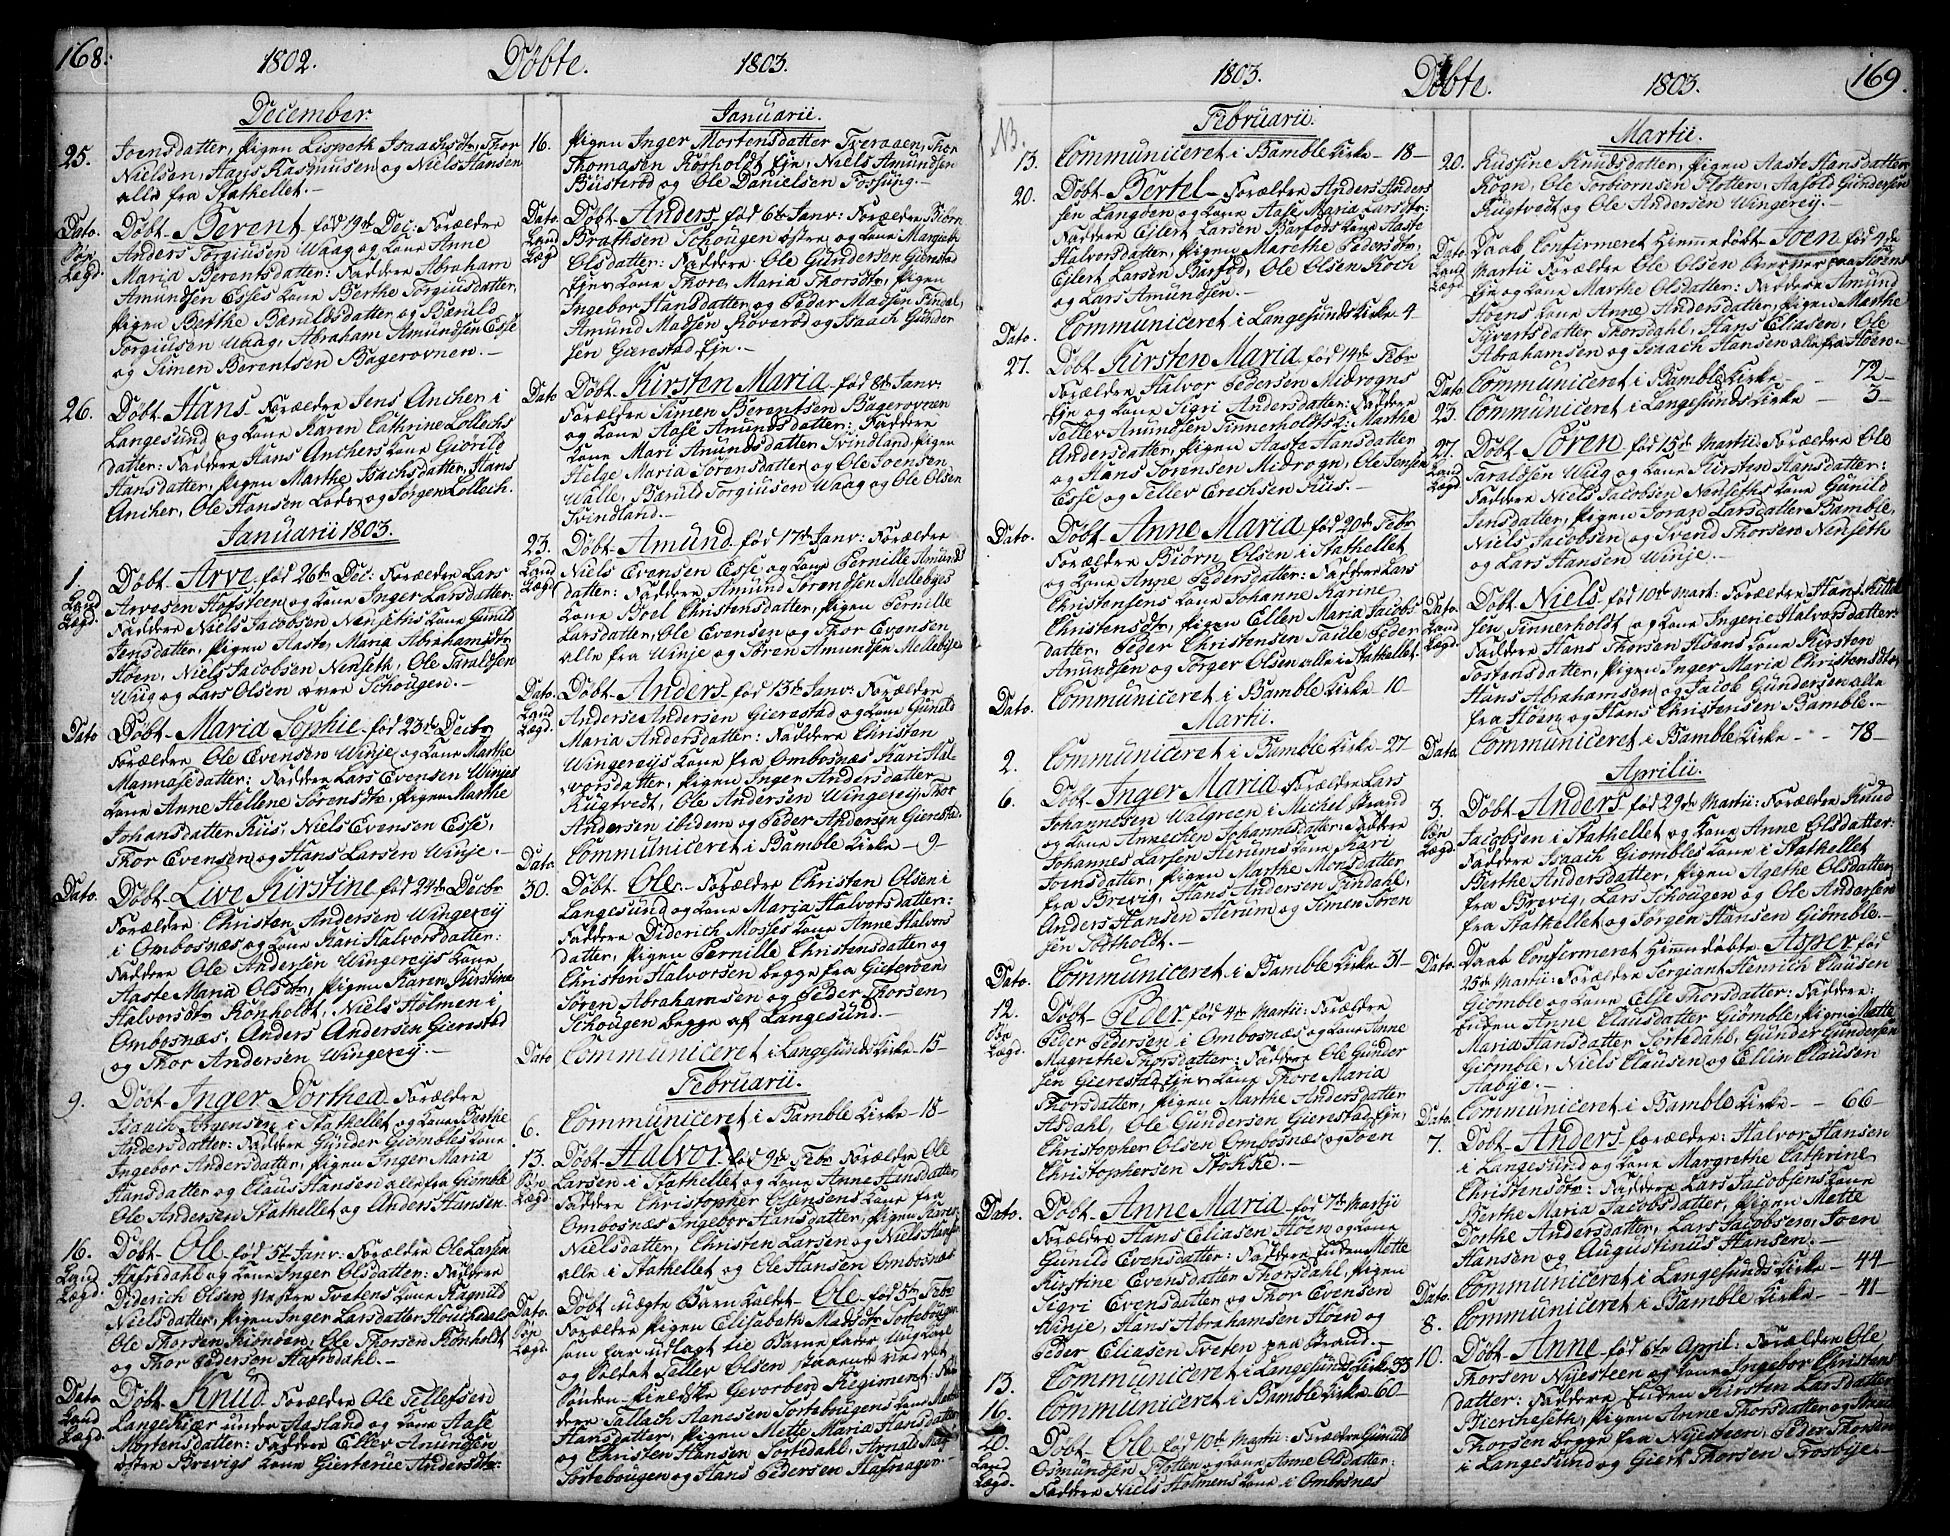 168.
1802. Døbte. 1803.
December.
25. Joensdatter, Pigen Lispeth Isaachsdtr, Thor
Nielsen, Hans Rasmusen og Niels Hansen
alle fra Stathellet.-
Dato. Døbt Berent fød 19de Dec: Forældre
Søe Lægd. Anders Torgiusen Waag og Kone Anne
Maria Berentsdatter: Faddere Abraham
Amundsen Esses Kone Berthe Torgiusdatter,
Pigen Berthe Bærulsdatter og Bæruld
Torgiusen Waag, Abraham Amundsen Esse
og Simen Berentsen Bagerovnen.-
26. Døbt Hans Forældre Jens Ancher i
Langesund og Kone Karen Cathrine Lollechs
datter: Faddere Hans Anchers Kone Giørild
Hansdatter, Pigen Marthe Isachsdatter, Hans
Ancher, Ole Hansen Lods og Jørgen Lollech.
Januarii 1803.
1. Døbt Arve fød 26de Dec: Forældre Lars
Land Lægd. Arvesen Hofsteen og Kone Inger Larsdatter:
Faddere Niels Jacobsen Nenseths Kone Gunild
Jensdatter, Pigen Aaste Maria Abrahamsdtr
Hoen, Niels Jacobsen Nenseth, Ole Taraldsen
Wiig og Lars Olsen øvre Schougen.-
Dato Døbt Maria Sophie fød 23de Decbr
Forældre Ole Evensen Winje og Kone Marthe
Mannasedatter: Faddere Lars Evensen Winjes
Kone Anne Hellene Sørensdtr, Pigen Marthe
Johansdatter Riis, Niels Evensen Esse,
Thor Evensen og Hans Larsen Winje.-
Dato. Døbt Live Kirstine fød 24de Decbr
Forældre Christen Andersen Wingereij
i Ombosnæs og Kone Kari Halvorsdatter:
Faddere Ole Andersen Wingereijs Kone
Aaste Maria Olsdtr, Pigen Karen Kirstine
Halvorsdtr Rønholdt, Niels Holmen i
Ombosnæs, Anders Andersen Gierestad
og Thor Andersen Wingereij.-
9. Døbt Inger Dorthea Forældre
Isaach Jørgensen i Stathellet og Kone Berthe
Andersdatter: Faddere Gunder Giømbles Kone
Ingebor Andersdatter, Pigen Inger Maria
Hansdatter og Claus Hansen alle fra Giømble
Ole Andersen Stathellet og Anders Hansen.
16. Døbt Ole fød 5te Janv: Forældre Ole Larsen
Land Lægd. Hafredahl og Kone Inger Olsdatter: Faddere
Diderich Olsen Vestre Tvetens Kone Ragnild
Nielsdatter, Pigen Inger Larsdatter
Ole Thorsen Kiønøen, Ole Thorsen Rønholdt
og Thor Pedersen Hafredahl.-
Dato Døbt Knud Forældre Ole Tellefsen
Land Lægd. Langekiær under Aasland og Kone Aase
Mortensdatter: Faddere Eller Anundsen
østre Brevigs Kone Giertrue Andersdtr:
Januarii.
16. Pigen Inger Mortensdatter Tveraaen, Thor
Thomasen Rørholdt Eje, Niels Amundsen
Büsterød og Ole Danielsen Fossing.-
Dato. Døbt Anders fød 6te Janv: Forældre Biørn
Land Lægd Brathsen Schougen østre og Kone Margreth
Olsdatter: Faddere Ole Gundersen Gierestad
Ejes Kone Thore Maria Thorsdtr, Pigen
Ingebor Hansdatter og Peder Madsen Findal,
Amund Madsen Roverød og Isaach Gunder
sen Gierestad Eje.-
Dato Døbt Kirsten Maria fød 8de Janv:
Forældre Simen Berentsen Bagerovnen
og Kone Aase Amundsdatter: Faddere
Kone Mari Amundsdatter Tvindland, Pigen
Helge Maria Sørensdatter og Ole Joensen
Walle, Bæruld Torgiusen Waag og Ole Olsen
Tvindland.-
23. Døbt Amund fød 17de Janv: Forældre
Land Lægd Niels Evensen Esse og Kone Pernille Amunds
datter: Faddere Amund Sørensen Mellebyes
Kone Joel Christensdatter, Pigen Pernille
Larsdatter, Ole Evensen og Thor Evensen
alle fra Winje og Søren Amundsen Mellebye.
Dato. Døbt Anders fød 13de Janv: Forældre
Land Lægd. Anders Andersen Gierestad og Kone Gunild
Maria Andersdatter: Faddere Christen
Wingereijs Kone fra Ombosnæs Kari Hal-
vorsdatter, Pigen Inger Andersdatter
Rugtvedt, Ole Andersen Wingereij, Thor
Andersen ibidem og Peder Andersen Gierestad.
Dato. Communiceret i Bamble Kirke - 9-
30. Døbt Ole. Forældre Christen Olsen i
Langesund og Kone Maria Halvorsdatter:
Faddere Diderich Mosses Kone Anne Halvors
datter, Pigen Pernille Christensdatter og
Christen Halvorsen begge fra Gieterøen,
Søren Abrahamsen og Peder Thorsen
Schougen begge af Langesund.-
Dato Communiceret i Langesunds Kirke - 15-
Februarii.
6. Communiceret i Bamble Kirke - 18-
13. Døbt Halvor fød 9de Febr Forældre Ole
Søe Lægd. Larsen i Stathellet og Kone Anne Hansdatter,
Faddere Christopher Essensens Kone fra
Ombosnæs Ingebor Hansdatter, Pigen Karen
Nielsdatter, Christen Larsen og Niels Hansen
alle i Stathellet og Ole Hansen Ombosnæs.
Dato. Døbt uægte Barn kaldet Ole fød 5te Febr
Søe Lægd. Forældre Pigen Elisabeth Madsdtr Sortebrogen
som har udlagt til Barnefader Ungkarl
og Soldat Teller Olsen staaende ved det
Søndenfieldske Gevorbene Regiment: Fad-
dere Tallach Hansen Sortebrugens Kone Marthe
Hansdatter, Pigen Mette Maria Hansdatter
og Christen Hansen Sortedahl, Arnold
Sortebrugen og Hans Pedersen Hafsager.-
1803. Døbte. 1803.
169.
NB.
Februarii.
13. Communiceret i Bamble Kirke - 18-
20. Døbt Bertel Forældre Anders Anders
sen Langøen og Kone Aase Maria Larsdtr:
Faddere Eilert Larsen Barfods Kone Aaste
Halvorsdatter, Pigen Marthe Pedersdtr,
Eilert Larsen Barfod, Ole Olsen Koch
og Lars Amundsen.-
Dato. Communiceret i Langesunds Kirke 4
27. Døbt Kirsten Maria fød 14de Febr
Forældre Halvor Pedersen Midrogns
Eje og Kone Sigri Andersdatter: Faddere
Teller Anundsen Tinnerholdts L: Marthe
Andersdatter, Pigen Aaste Hansdatter
og Hans Sørensen Midrogn, Ole Jensen
Esse og Teller Erechsen Riis.-
Dato. Døbt Anne Maria fød 20de Febr
Forældre Biørn Olsen i Stathellet
og Kone Anne Pedersdatter: Faddere Lars
Christensens Kone Johanne Karine
Christensdtr, Pigen Ellen Maria Jacobs
datter, Peder Christensen Taule, Peder
Amundsen og Torger Olsen alle i Stathellet.
Dato. Communiceret i Bamble Kirke 10-
Martii.
2. Communiceret i Bamble Kirke - 27
6. Døbt Inger Maria Forældre Lars
Johannesen Walgreen i Michel Strand
og Kone Annechen Johannesdatter: Faddere
Johannes Larsen Herums Kone Kari
Joensdatter, Pigen Marthe Monsdatter
fra Brevig, Hans Andersen Findahl,
Anders Hansen Herum og Simen Søren
sen Tortholdt.-
Dato. Communiceret i Bamble Kirke 31-
12. Døbt Peder fød 4de Martii: Forældre
Søe Lægd. Peder Pedersen i Ombosnæs og Kone Anne
Magrethe Thorsdatter: Faddere Ole Gunder
sen Gierestad Ejes Kone Thore Maria
Thorsdatter, Pigen Marthe Andersdatter
Alsdahl, Ole Gundersen Gierestad Eje,
Christopher Olsen Ombosnæs og Joen
Christophersen Stokke.-
Dato. Døbt Anne Maria fød 7de Martii
Forældre Hans Eliasen Hoen og Kone
Gunild Evensdatter: Faddere Enken Mette
Kirstine Evensdatter Thorsdahl, Pigen
Sigri Evensdatter og Thor Evensen
Winje, Hans Abrahamsen Hoen og
Peder Eliasen Tveten paa Strand.-
13. Communiceret i Langesunds Kirke 33
16. Communiceret i Bamble Kirke 60-
20. Døbt Ole fød 10de Martii: Forældre Gunuld
Land Lægd. Osmundsen Flotten og Kone Anne Olsdatter:
Faddere Niels Holmens Kone i Ombosnæs
Martii.
20. Rassine Knudsdatter, Pigen Aaste Hansdatter
Rogn, Ole Torbiørnsen Flotten, Aasold Gundersen
Rugtvedt og Ole Andersen Wingereij.-
Dato Daab Confirmeret Hiemmedøbt Joen fød 4de
Land Lægd. Martii Forældre Ole Olsen paa Hoens
Eje og Kone Marthe Olsdatter: Faddere Amund
Hoens Kone Anne Andersdatter, Pigen Marthe
Sivertsdatter Thorsdahl, Hans Eliasen, Ole
Abrahamsen og Isaach Hansen alle fra Hoen-
Dato Communiceret i Bamble Kirke - 72-
23. Communiceret i Langesunds Kirke - 3-
27. Døbt Søren fød 15de Martii Forældre Ole
Land Lægd. Taraldsen Wiig og Kone Kirsten Hansdatter:
Faddere Niels Jacobsen Nenseths Kone Gunild
Jensdatter, Pigen Joran Larsdatter Bamble,
Niels Jacobsen og Svend Thorsen Nenseth
og Lars Hansen Winje.-
Dato. Døbt Niels fød 10de Mart: Forældre Hans Kittel
Land Lægd. sen Tinnerholdt og Kone Ingerie Halvorsdatter:
Faddere Hans Thorsen Hoens Kone Kirsten
Tostensdatter, Pigen Inger Maria Christensdtr,
Hans Abrahamsen og Jacob Gundersen alle
fra Hoen og Hans Christensen Bamble.-
Dato. Communiceret i Bamble Kirke - - 78-
Aprilii.
3. Døbt Anders fød 29de Martii: Forældre Knud
Søe Lægd. Jacobsen i Stathellet og Kone Anne Olsdatter:
Faddere Isaach Giømbles Kone i Stathellet
Berthe Andersdatter, Pigen Agethe Olsdatter
fra Brevig, Lars Schougen og Ole Andersen
fra Stathellet og Jørgen Hansen Giømble.-
Dato. Daab Confirmeret Hiemmedøbte Asper fød
25de Martii: Forældre Sergiant Henrich Clausen
Giømble og Kone Else Thorsdatter: Faddere:
Enken Anne Clausdatter Giømble, Pigen Mette
Maria Hansdatter Sortedahl, Gunder Gundersen
Giømble, Niels Clausen og Ellin Clausen
Habye.-
Dato. Communiceret i Bamble Kirke - 66-
7. Døbt Anders Forældre: Halvor Hansen
i Langesund og Kone Margrethe Cathrine
Christensdtr: Faddere Lars Jacobsens Kone
Berthe Maria Jacobsdatter, Pigen Mette
Dorthe Andersdatter, Lars Jacobsen, Joen
Hansen og Augustinus Hansen.-
Communiceret i Langesunds Kirke - 44-
Dato. Communiceret i Bamble Kirke - 41-
8.
10. Døbt Anne fød 6te April: Forældre Ole
Thorsen Nyesteen og Kone Ingebor Christens
datter: Faddere Enken Kirsten Larsdatter
Biercheseth, Pigen Anne Thorsdatter og
Thorsen begge fra Nyesteen, Peder Thorsen
i Langesund og Giert Thorsen Trosbye.